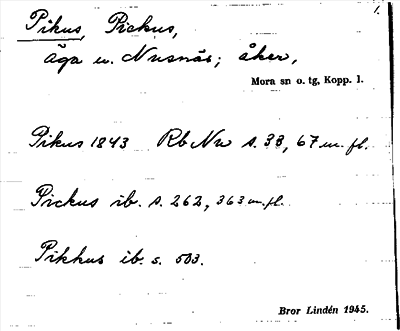 1.
Pikus, Pickus,
äga u. Nusnäs; åker,
Mora sn o. tg, Kopp. l.
Pikus 1843 Rb Nu s. 33, 67 m. fl.
Pickus ib. s. 262, 363 m. fl.
Pikkus ib. s. 503.
Bror Lindén 1945.